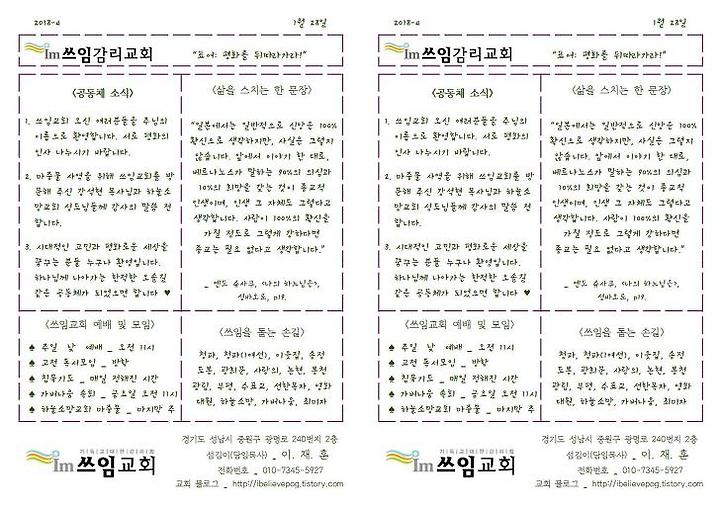 2018-4
1월 28일
Im쓰임감리교회
"표어: 평화를 뒤따라가라!"
<공동체 소식>
1. 쓰임교회 오신 여러분들을 주님의
이름으로 환영합니다. 서로 평화의
인사 나누시기 바랍니다.
2. 마중물 사역을 위해 쓰임교회를 방
문해 주신 강석현 목사님과 하늘소
망교회 성도님들께 감사의 말씀 전
합니다.
3. 시대적인 고민과 평화로운 세상을
꿈꾸는 분들 누구나 환영입니다.
하나님께 나아가는 한적한 오솔길
같은 공동체가 되었으면 합니다 ♥
<삶을 스치는 한 문장>
"일본에서는 일반적으로 신앙은 100%
확신으로 생각하지만, 사실은 그렇지
않습니다. 앞에서 이야기 한 대로,
베르나노스가 말하는 90%의 의심과
10%의 희망을 갖는 것이 종교적
인생이며, 인생 그 자체도 그렇다고
생각합니다. 사람이 100%의 확신을
가질 정도로 그렇게 강하다면
종교는 필요 없다고 생각합니다."
_ 엔도 슈사쿠, <나의 하느님은>,
성바오로, p19.
<쓰임교회 예배 및 모임>
♠ 주일 낮 예배 _ 오전 11시
♠ 고전 독서모임 _ 방학
♠ 침묵기도 _ 매일 정해진 시간
♠ 가버나움 속회 _ 금요일 오전 11시
♠ 하늘소망교회 마중물 _ 마지막 주
<쓰임을 돕는 손길>
청파, 청파(여선), 이웃길, 송전
도봉, 광희문, 사랑의, 논현, 봉천
광림, 부평, 수표교, 선한목자, 영화
대원, 하늘소망, 가버나움, 최미자
기독교대한감리회
Im쓰임교회
경기도 성남시 중원구 광명로 240번지 2층
섬김이(담임목사) _ 이. 재. 훈
전화번호 _ 010-7345-5927
교회 블로그 _ http://ibelievepog.tistory.com
2018-4
1월 28일
Im쓰임감리교회
"표어: 평화를 뒤따라가라!"
<공동체 소식>
1. 쓰임교회 오신 여러분들을 주님의
이름으로 환영합니다. 서로 평화의
인사 나누시기 바랍니다.
2. 마중물 사역을 위해 쓰임교회를 방
문해 주신 강석현 목사님과 하늘소
망교회 성도님들께 감사의 말씀 전
합니다.
3. 시대적인 고민과 평화로운 세상을
꿈꾸는 분들 누구나 환영입니다.
하나님께 나아가는 한적한 오솔길
같은 공동체가 되었으면 합니다 ♥
<삶을 스치는 한 문장>
"일본에서는 일반적으로 신앙은 100%
확신으로 생각하지만, 사실은 그렇지
않습니다. 앞에서 이야기 한 대로,
베르나노스가 말하는 90%의 의심과
10%의 희망을 갖는 것이 종교적
인생이며, 인생 그 자체도 그렇다고
생각합니다. 사람이 100%의 확신을
가질 정도로 그렇게 강하다면
종교는 필요 없다고 생각합니다."
_ 엔도 슈사쿠, <나의 하느님은>,
성바오로, p19.
<쓰임교회 예배 및 모임>
♠ 주일 낮 예배 _ 오전 11시
♠ 고전 독서모임 _ 방학
♠ 침묵기도 _ 매일 정해진 시간
♠ 가버나움 속회 _ 금요일 오전 11시
♠ 하늘소망교회 마중물 _ 마지막 주
<쓰임을 돕는 손길>
청파, 청파(여선), 이웃길, 송전
도봉, 광희문, 사랑의, 논현, 봉천
광림, 부평, 수표교, 선한목자, 영화
대원, 하늘소망, 가버나움, 최미자
기독교대한감리회
Im쓰임교회
경기도 성남시 중원구 광명로 240번지 2층
섬김이(담임목사) _ 이. 재. 훈
전화번호 _ 010-7345-5927
교회 블로그 _ http://ibelievepog.tistory.com